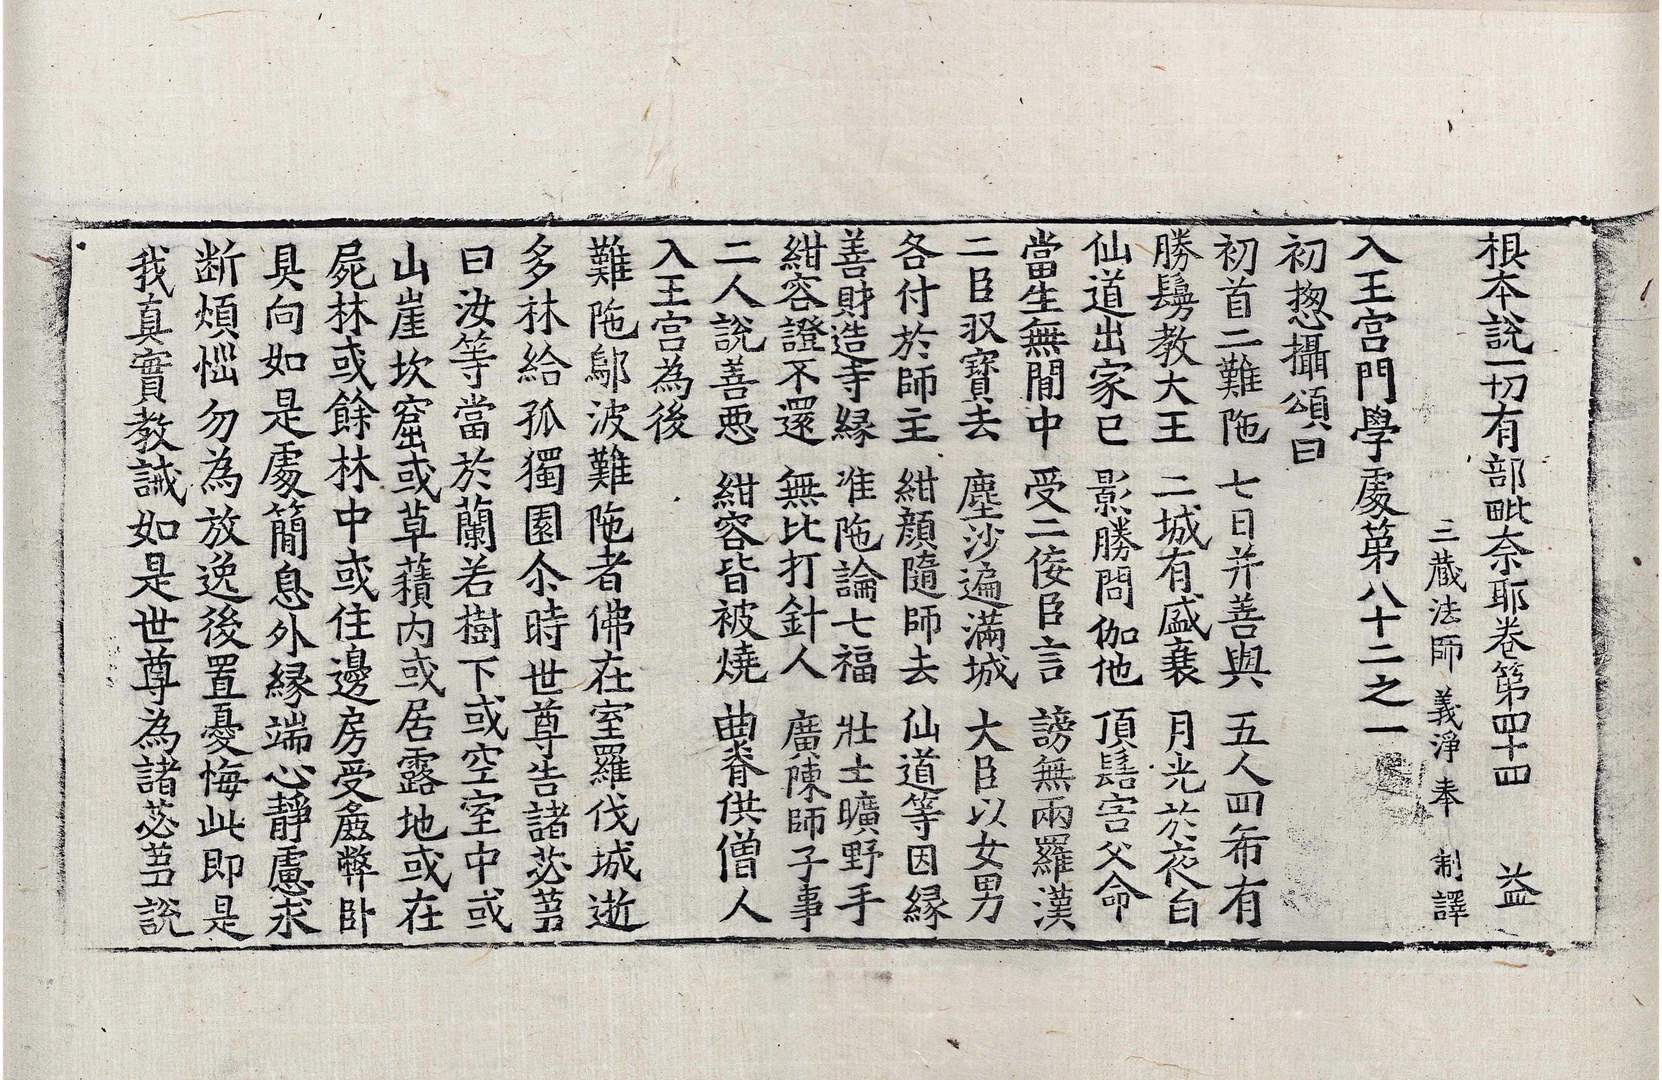 根本說一切有部毗奈耶卷第四十四 益
三藏法師 義淨奉 制譯
入王宮門學處第八十二之一
初揔攝頌曰
初首二難陁 七日并善與 五人四希有
勝鬘教大王 二城有盛衰 月光於夜白
仙道出家已 影勝問伽他 頂髻害父命
當生無間中 受二佞臣言 謗無兩羅漢
二臣収寶去 塵沙遍滿城 大臣以女男
各付於師主 紺顔隨師去 仙道等因緣
善財造寺緣 准陁論七福 壯士曠野手
紺容證不還 無比打針人 廣陳師子事
二人說善惡 紺容皆被燒 曲脊供僧人
入王宮為後
難陁鄔波難陁者佛在室羅伐城逝
多林給孤獨園尒時世尊告諸苾芻
曰汝等當於蘭若樹下或空室中或
山崖坎窟或草䕆内或居露地或在
屍林或餘林中或住邊房受麁弊卧
具向如是處簡息外緣端心靜慮求
断煩惱勿為放逸後置憂悔此即是
我真實教誡如是世尊為諸苾芻說